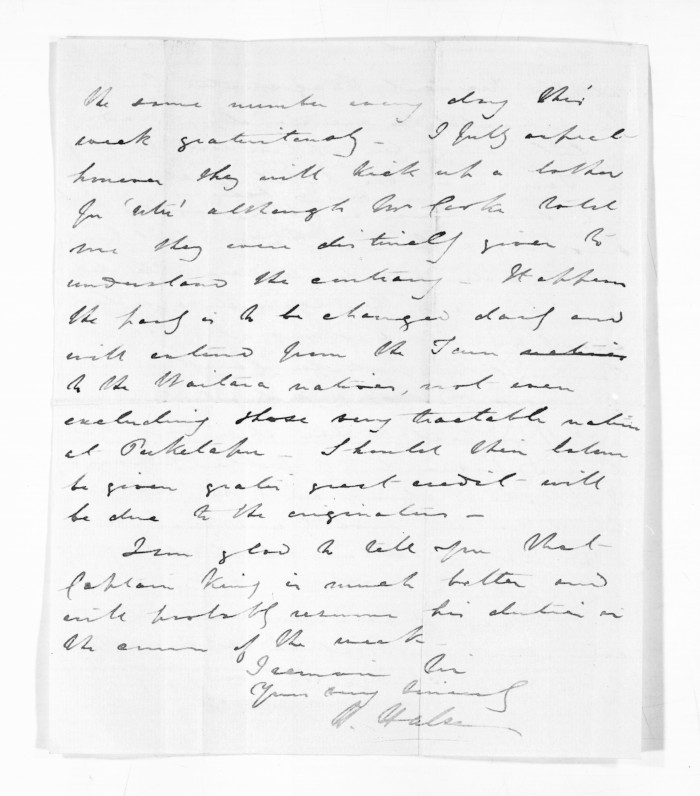 the same number every day this
week gratuitously - I fully expect
however they will kick up a bother
for 'utu' although Mr Cooke told
me they were distinctly given to
understand the contrary - It appears
the party is to be changed daily and
will extend from the Town natives
to the Waitara natives, not even
excluding those very tractable natives
at Puketapu - Should their labour
be given gratis great credit will
be due to the originators -
I am glad to tell you that
Captain King is much better and
will probably resume his duties in
the course of the week -
I remain Sir
Yours very sincerely
H. Halse